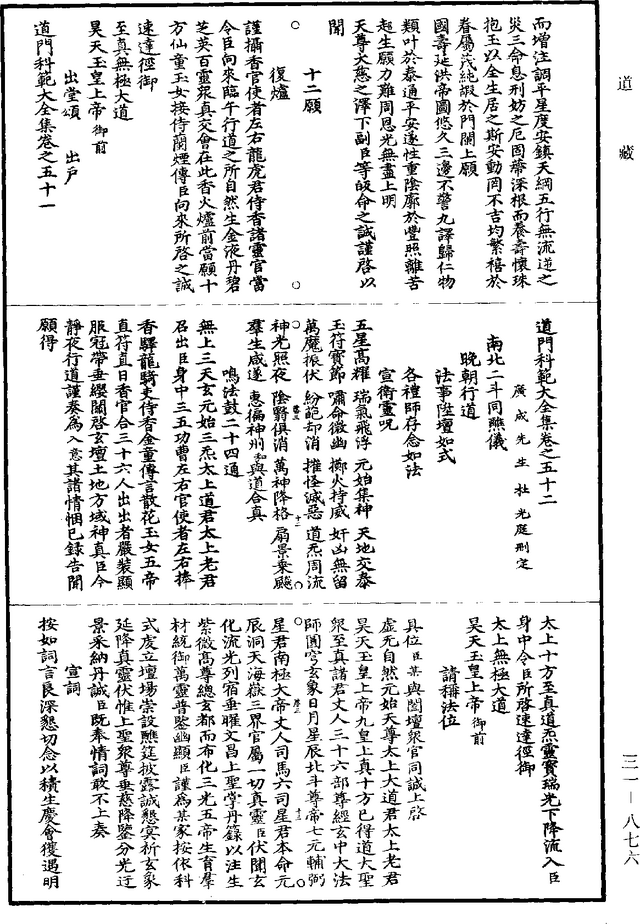 道藏
而增注調平星度安鎮天綱五行無流逆之
災三命息刑妨之厄固蔕深根而養壽懷珠
抱玉以全生居之斯安動罔不吉均繁禧於
眷屬茂純嘏於門闌上願
國壽延洪帝圖悠久三邊不警九譯歸仁物
類叶於泰通平安遂性重陰廓於豐照離苦
起生願力難周恩光無盡上明
天尊大慈之澤下副臣等皈命之誠謹啓以
聞
十二願
復爐
謹攝香官使者左右龍虎君侍香諸靈官當
令臣向來臨午行道之所自然生金液丹碧
芝英百靈衆真交會在此香火爐前當願十
方仙童玉女接侍蘭煙傳臣向來所啓之誠
速達徑御
至真無極大道
昊天玉皇上帝御前
出堂頌 出户
道門科範大全集卷之五十一
道門科範大全集卷之五十二
廣成先生杜光庭刪定
南北二斗同醮儀
晚朝行道
法事陞壇如式
各禮師存念如法
宣衛靈呪
五星高耀 瑞氣飛浮 元始集神 天地交泰
玉符寶節 嘯命徵幽 擲火持威 奸凶無留
萬魔振伏 紛葩却消 摧怪滅惡 道炁周流
神光照夜 陰翳俱消 萬神降格 扇景乘飈
羣生咸遂 惠徧神州 與道合真
鳴法鼓二十四通
無上三天玄元始三炁太上道君太上老君
召出臣身中三五功曹左右官使者左右捧
香驛龍騎吏侍香金童傳言散花玉女五帝
直符直日香官合三十六人出出者嚴裝顯
服冠帶垂纓關啓玄壇土地方域神真臣今
靜夜行道謹奏爲入意其諸情悃已錄告聞
願得
太上十方至真道炁靈寶瑞光下降流入臣
身中令臣所啓速達徑御
太上無極大道
昊天玉皇上帝御前
請稱法位
具位臣某與闔壇衆官同誠上啓
虛无自然元始天尊太上大道君太上老君
昊天玉皇上帝九皇上真十方已得道大聖
衆至真諸君丈人三十六部尊經玄中大法
師圓穹玄象日月星辰北斗尊帝七元輔弼
星君南極大帝丈人司馬六司星君本命元
辰洞天海嶽三界官屬一切真靈臣伏聞玄
化流光列宿垂曜文昌上聖掌丹籙以注生
紫微高尊總玄都而布化三光五帝生育羣
材統御萬靈普鑒幽顯臣謹爲某家按依科
式虔立壇場崇設醮筵披露誠懇冥祈玄象
延降真靈伏惟上聖衆尊垂慈降鑒分光迂
景采納丹誠臣既奉情詞敢不上奏
宣詞
按如詞言良深懇切念以積生慶會復遇明
三一－八七六